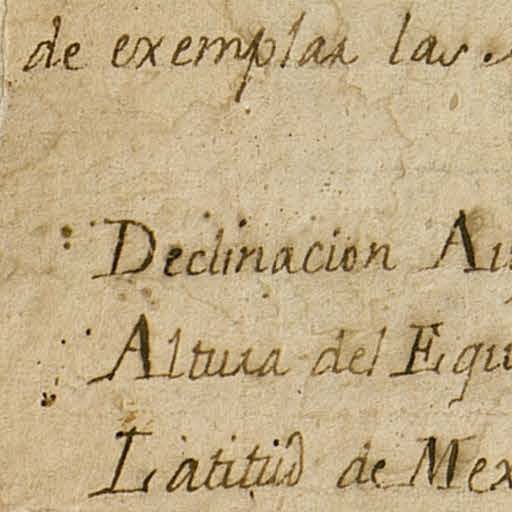 de exemplar las
Declinacion Au
Altura del Equ
Latitud de Mex